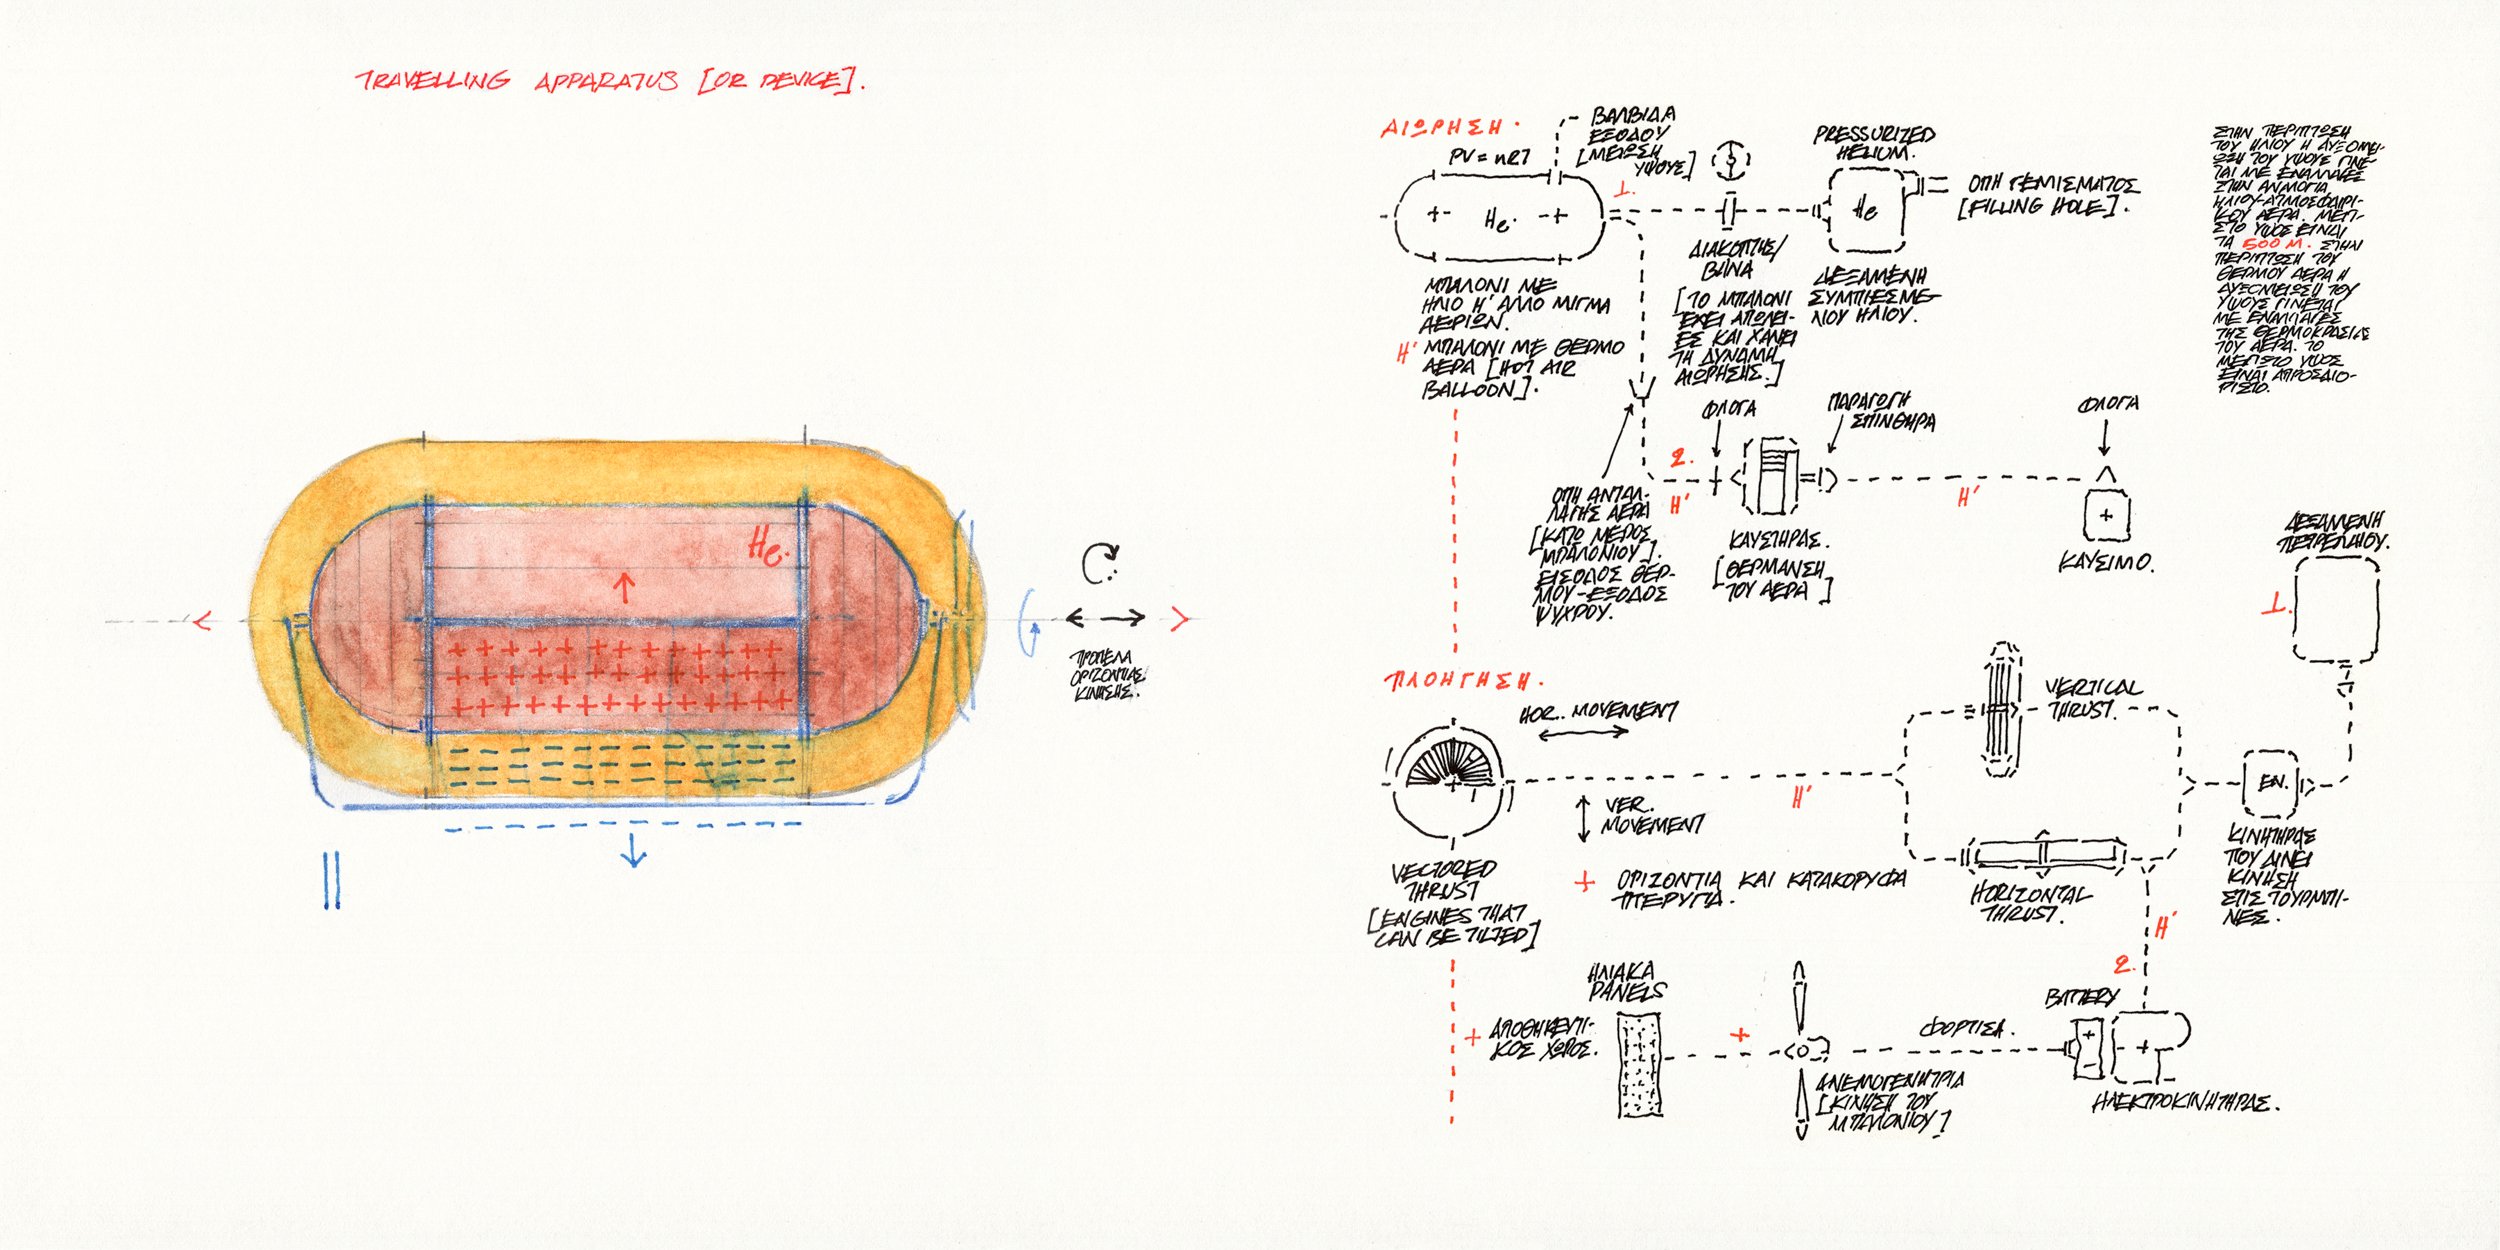 TRAVELLING APPARATUS [OR DEVICE].
He.
ΠΡΟΠΕΛΑ
ΟΡΙΖΟΝΤΙΑΣ
ΚΙΝΗΣΗΣ.
ΑΙΩΡΗΣΗ.
PV = nRT
He.
ΒΑΛΒΙΔΑ
ΕΞΟΔΟΥ
[ΜΕΙΩΣΗ
ΥΨΟΥΣ]
1.
PRESSURIZED
HELIUM.
He
ΟΠΗ ΓΕΜΙΣΜΑΤΟΣ
[FILLING HOLE].
ΜΠΑΛΟΝΙ ΜΕ
ΗΛΙΟ Η' ΑΛΛΟ ΜΙΓΜΑ
ΑΕΡΙΩΝ.
Η' ΜΠΑΛΟΝΙ ΜΕ ΘΕΡΜΟ
ΑΕΡΑ [HOT AIR
BALLOON].
ΔΙΑΚΟΠΤΗΣ/
ΒΑΝΑ
[ΤΟ ΜΠΑΛΟΝΙ
ΕΧΕΙ ΑΠΩΛΕΙ-
ΕΣ ΚΑΙ ΧΑΝΕΙ
ΤΗ ΔΥΝΑΜΗ
ΑΙΩΡΗΣΗΣ.]
ΔΕΞΑΜΕΝΗ
ΣΥΜΠΙΕΣΜΕ-
ΝΟΥ ΗΛΙΟΥ.
ΣΤΗΝ ΠΕΡΙΠΤΩΣΗ
ΤΟΥ ΗΛΙΟΥ Η ΑΥΞΟΜΕΙ-
ΩΣΗ ΤΟΥ ΥΨΟΥΣ ΓΙΝΕ-
ΤΑΙ ΜΕ ΕΝΑΛΛΑΓΕΣ
ΣΤΗΝ ΑΝΑΛΟΓΙΑ
ΗΛΙΟΥ-ΑΤΜΟΣΦΑΙΡΙ-
ΚΟΥ ΑΕΡΑ. ΜΕΓΙ-
ΣΤΟ ΥΨΟΣ ΕΙΝΑΙ
ΤΑ 500 Μ. ΣΤΗΝ
ΠΕΡΙΠΤΩΣΗ ΤΟΥ
ΘΕΡΜΟΥ ΑΕΡΑ Η
ΑΥΞΟΜΕΙΩΣΗ ΤΟΥ
ΥΨΟΥΣ ΓΙΝΕΤΑΙ
ΜΕ ΕΝΑΛΛΑΓΕΣ
ΤΗΣ ΘΕΡΜΟΚΡΑΣΙΑΣ
ΤΟΥ ΑΕΡΑ. ΤΟ
ΜΕΓΙΣΤΟ ΥΨΟΣ
ΕΙΝΑΙ ΑΠΡΟΣΔΙΟ-
ΡΙΣΤΟ.
ΦΛΟΓΑ
ΠΑΡΑΓΩΓΗ
ΣΠΙΝΘΗΡΑ
ΦΛΟΓΑ
2.
Η'
Η'
ΟΠΗ ΑΝΤΑΛ-
ΛΑΓΗΣ ΑΕΡΑ
[ΚΑΤΩ ΜΕΡΟΣ
ΜΠΑΛΟΝΙΟΥ].
ΕΙΣΟΔΟΣ ΘΕΡ-
ΜΟΥ-ΕΞΟΔΟΣ
ΨΥΧΡΟΥ.
ΚΑΥΣΤΗΡΑΣ.
[ΘΕΡΜΑΝΣΗ
ΤΟΥ ΑΕΡΑ]
ΚΑΥΣΙΜΟ.
ΔΕΞΑΜΕΝΗ
ΠΕΤΡΕΛΑΙΟΥ.
1.
ΠΛΟΗΓΗΣΗ.
HOR. MOVEMENT
VERTICAL
THRUST.
Η'
VER.
MOVEMENT
EN.
VECTORED
THRUST
[ENGINES THAT
CAN BE TILTED]
+ ΟΡΙΖΟΝΤΙΑ ΚΑΙ ΚΑΤΑΚΟΡΥΦΑ
ΠΤΕΡΥΓΙΑ.
HORIZONTAL
THRUST.
ΚΙΝΗΤΗΡΑΣ
ΠΟΥ ΔΙΝΕΙ
ΚΙΝΗΣΗ
ΣΤΙΣ ΤΟΥΡΜΠΙ-
ΝΕΣ.
Η'
2.
ΗΛΙΑΚΑ
PANELS
+ ΑΠΟΘΗΚΕΥΤΙ-
ΚΟΣ ΧΩΡΟΣ.
+
ΦΟΡΤΙΣΗ.
BATTERY
ΑΝΕΜΟΓΕΝΗΤΡΙΑ
[ΚΙΝΗΣΗ ΤΟΥ
ΜΠΑΛΟΝΙΟΥ]
ΗΛΕΚΤΡΟΚΙΝΗΤΗΡΑΣ.